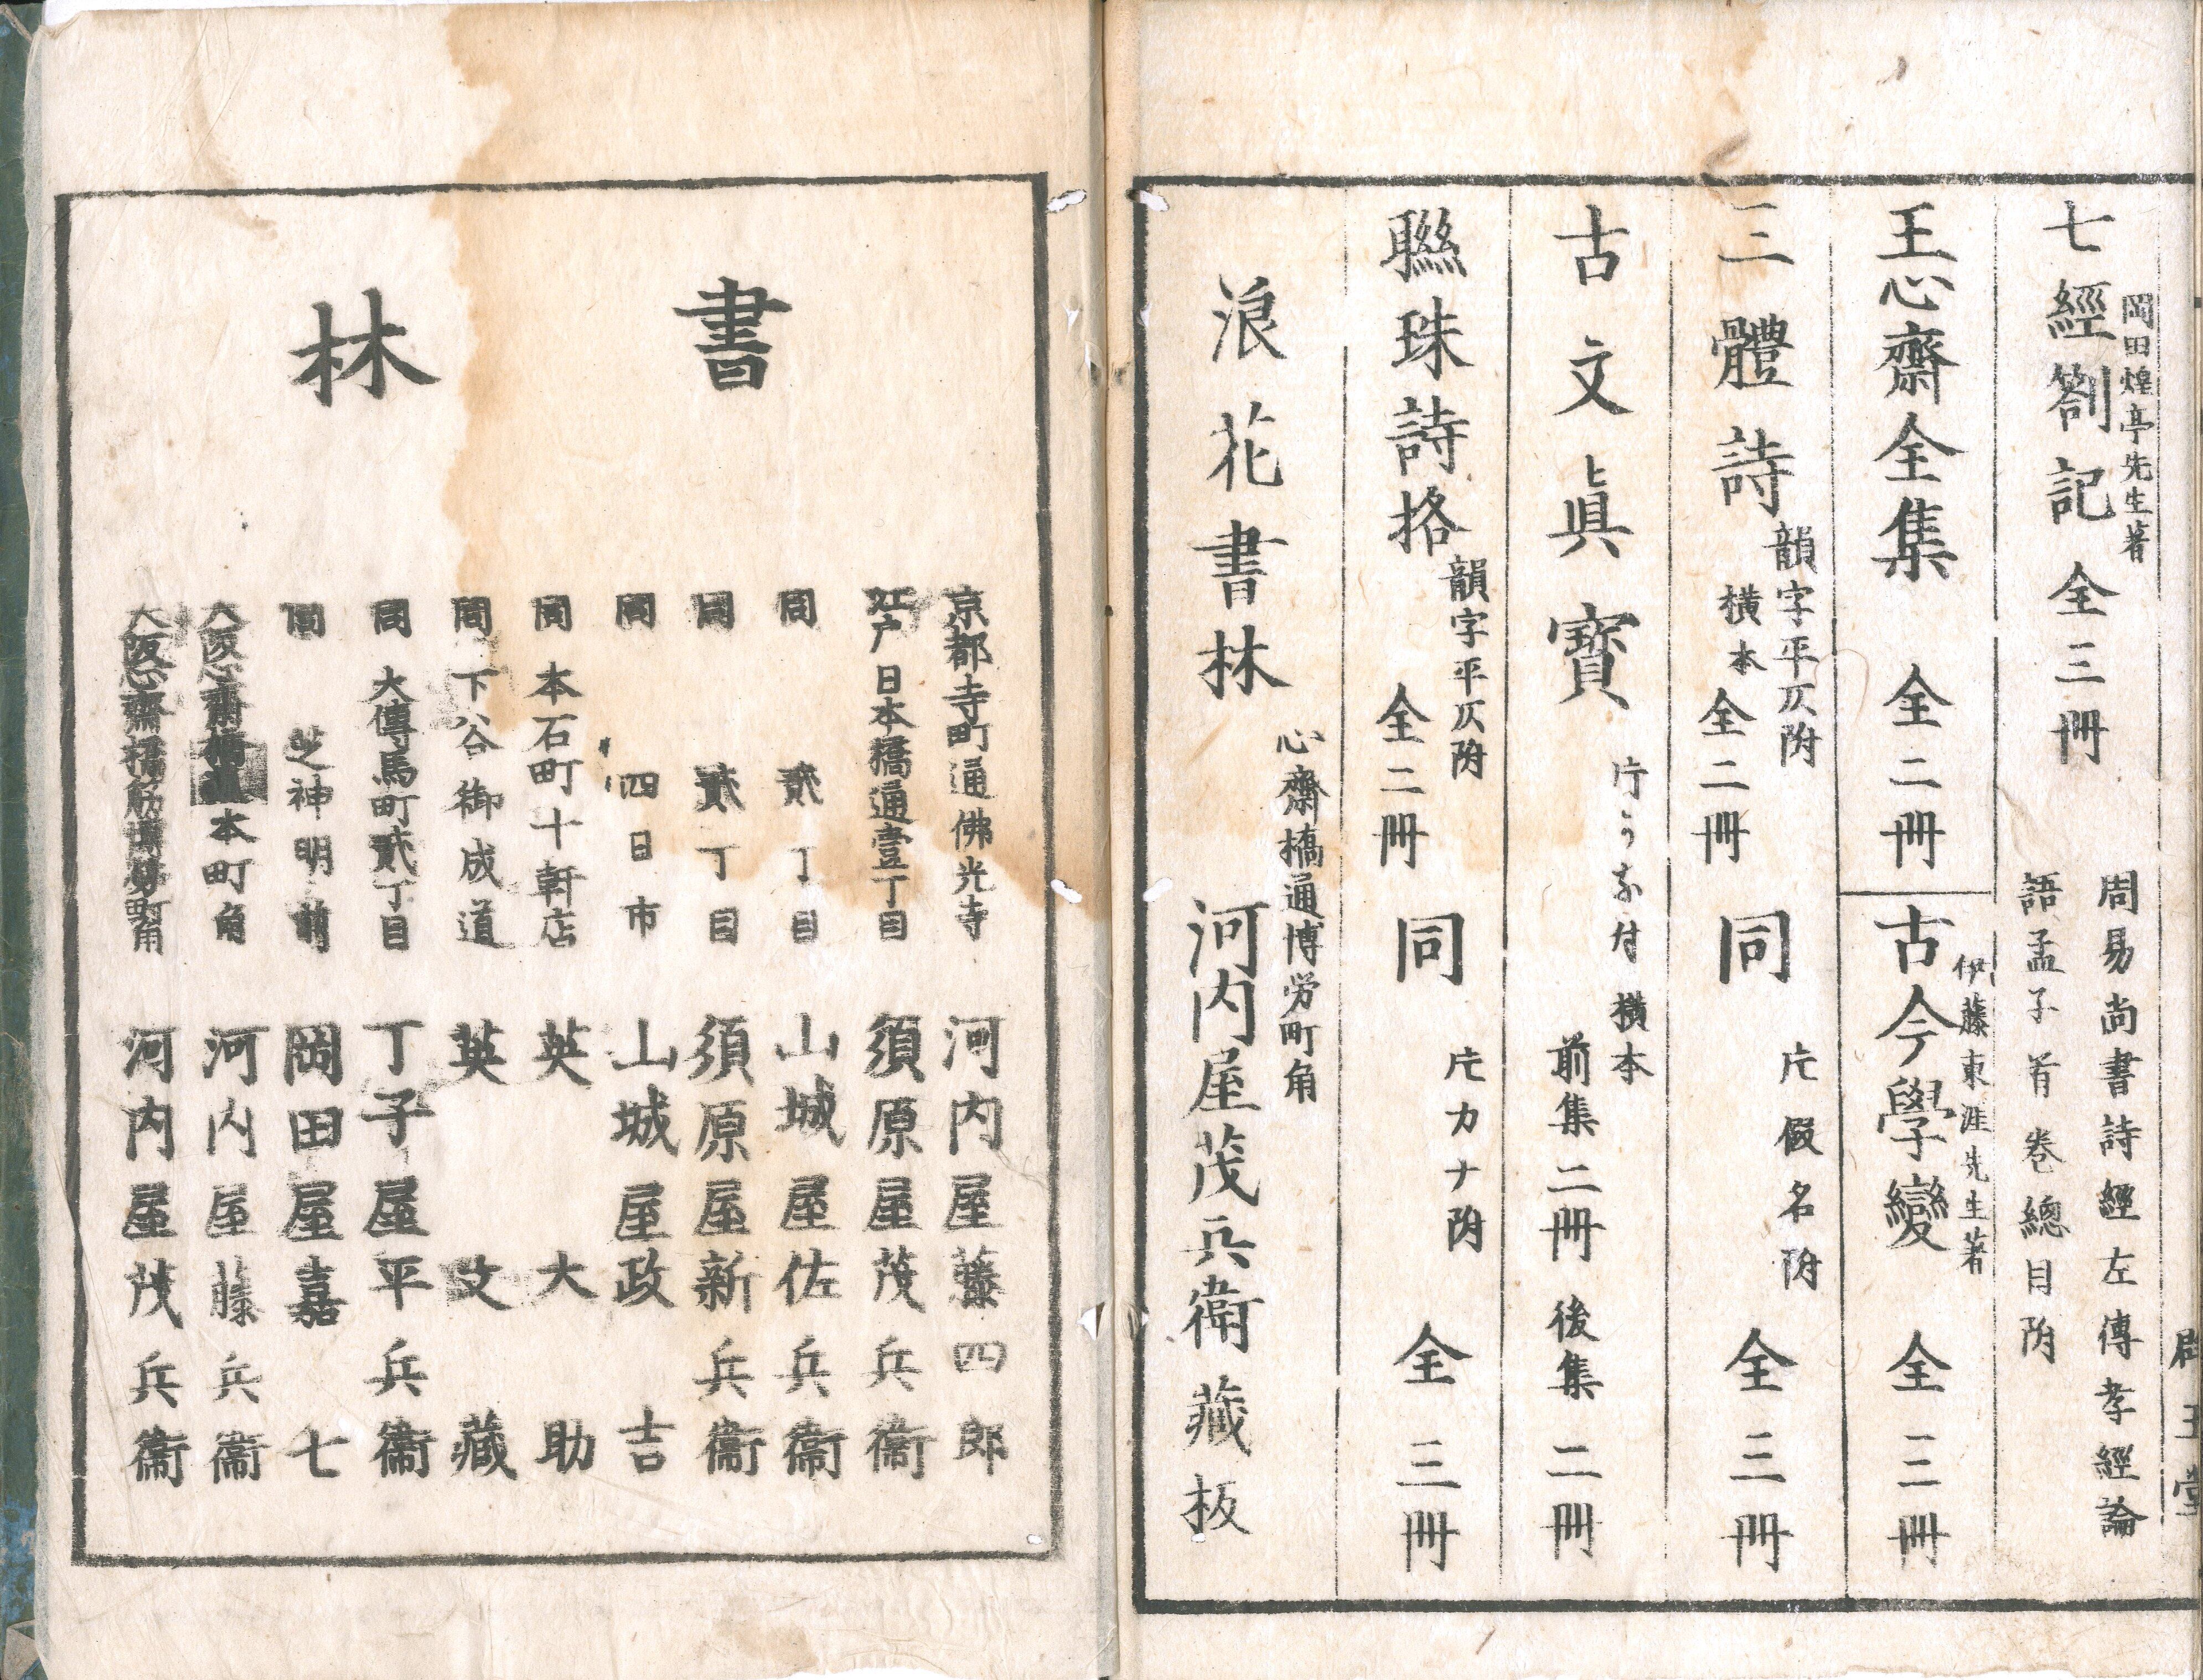 岡田煌亭先生著
七經劄記 全三冊
周易尚書詩經左傳孝經論
語孟子首卷總目附
王心齋全集 全二冊
伊藤東涯先生著
古今學變 全三冊
三體詩
韻字平仄附
横本
全二冊
同
片假名附
全三冊
古文眞寳
片うな付 横本
前集二冊 後集二冊
聯珠詩格
韻字平仄附
全二冊
同
片カナ附
全三冊
浪花書林
心齋橋通博労町角
河内屋茂兵衛藏板
玉堂
書林
京都寺町通佛光寺 河内屋藤四郎
江戸日本橋通壹丁目 須原屋茂兵衛
同 貳丁目 山城屋佐兵衛
同 貳丁目 須原屋新兵衛
同 四日市 山城屋政吉
同 本石町十軒店 英大助
同 下谷御成道 英文藏
同 大傳馬町貳丁目 丁子屋平兵衛
同 芝神明前 岡田屋嘉七
大阪心齋橋 本町角 河内屋藤兵衛
大阪心齋橋筋博労町角 河内屋茂兵衛